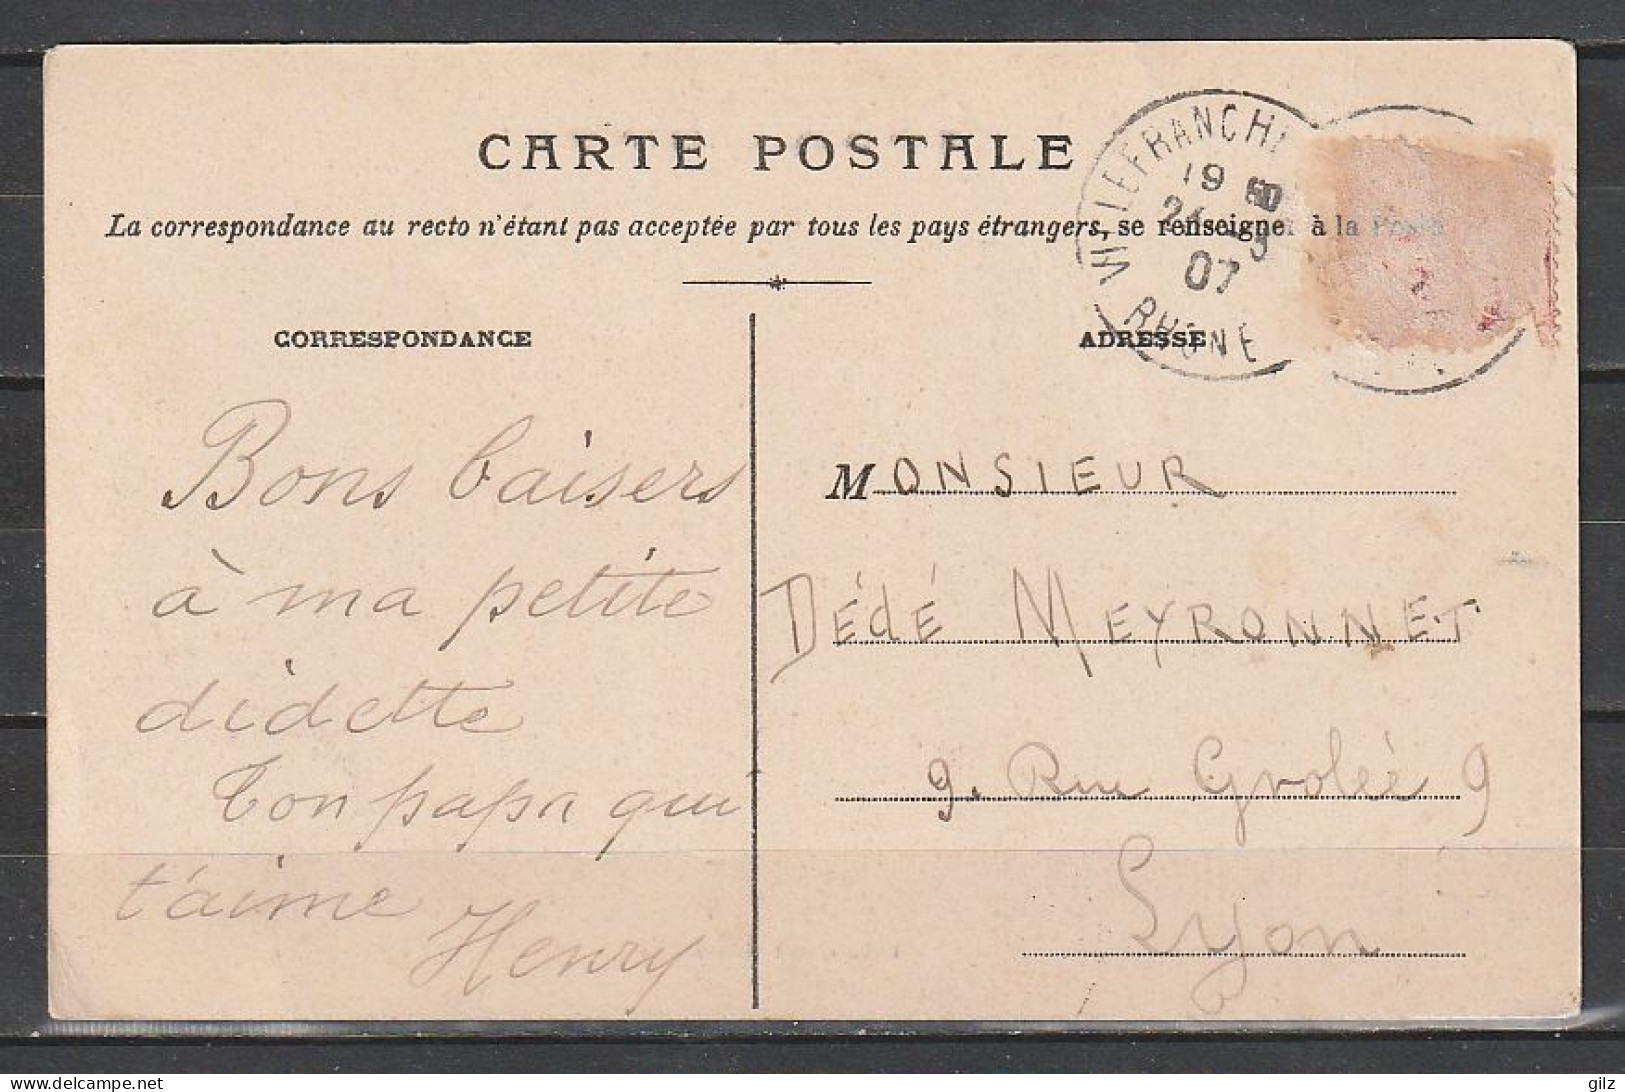 CARTE POSTALE
La correspondance au recto n'étant pas acceptée par tous les pays étrangers, se renseigner à la Poste
VILLEFRANCHE
19
07
RHÔNE
CORRESPONDANCE
Bons baisers
à ma petite
didette
Ton papa qui
t'aime
Henry
ADRESSE
MONSIEUR
DÉdÉ MEYRONNET
9. Rue Grolée 9
Lyon
delcampe.net
gilz